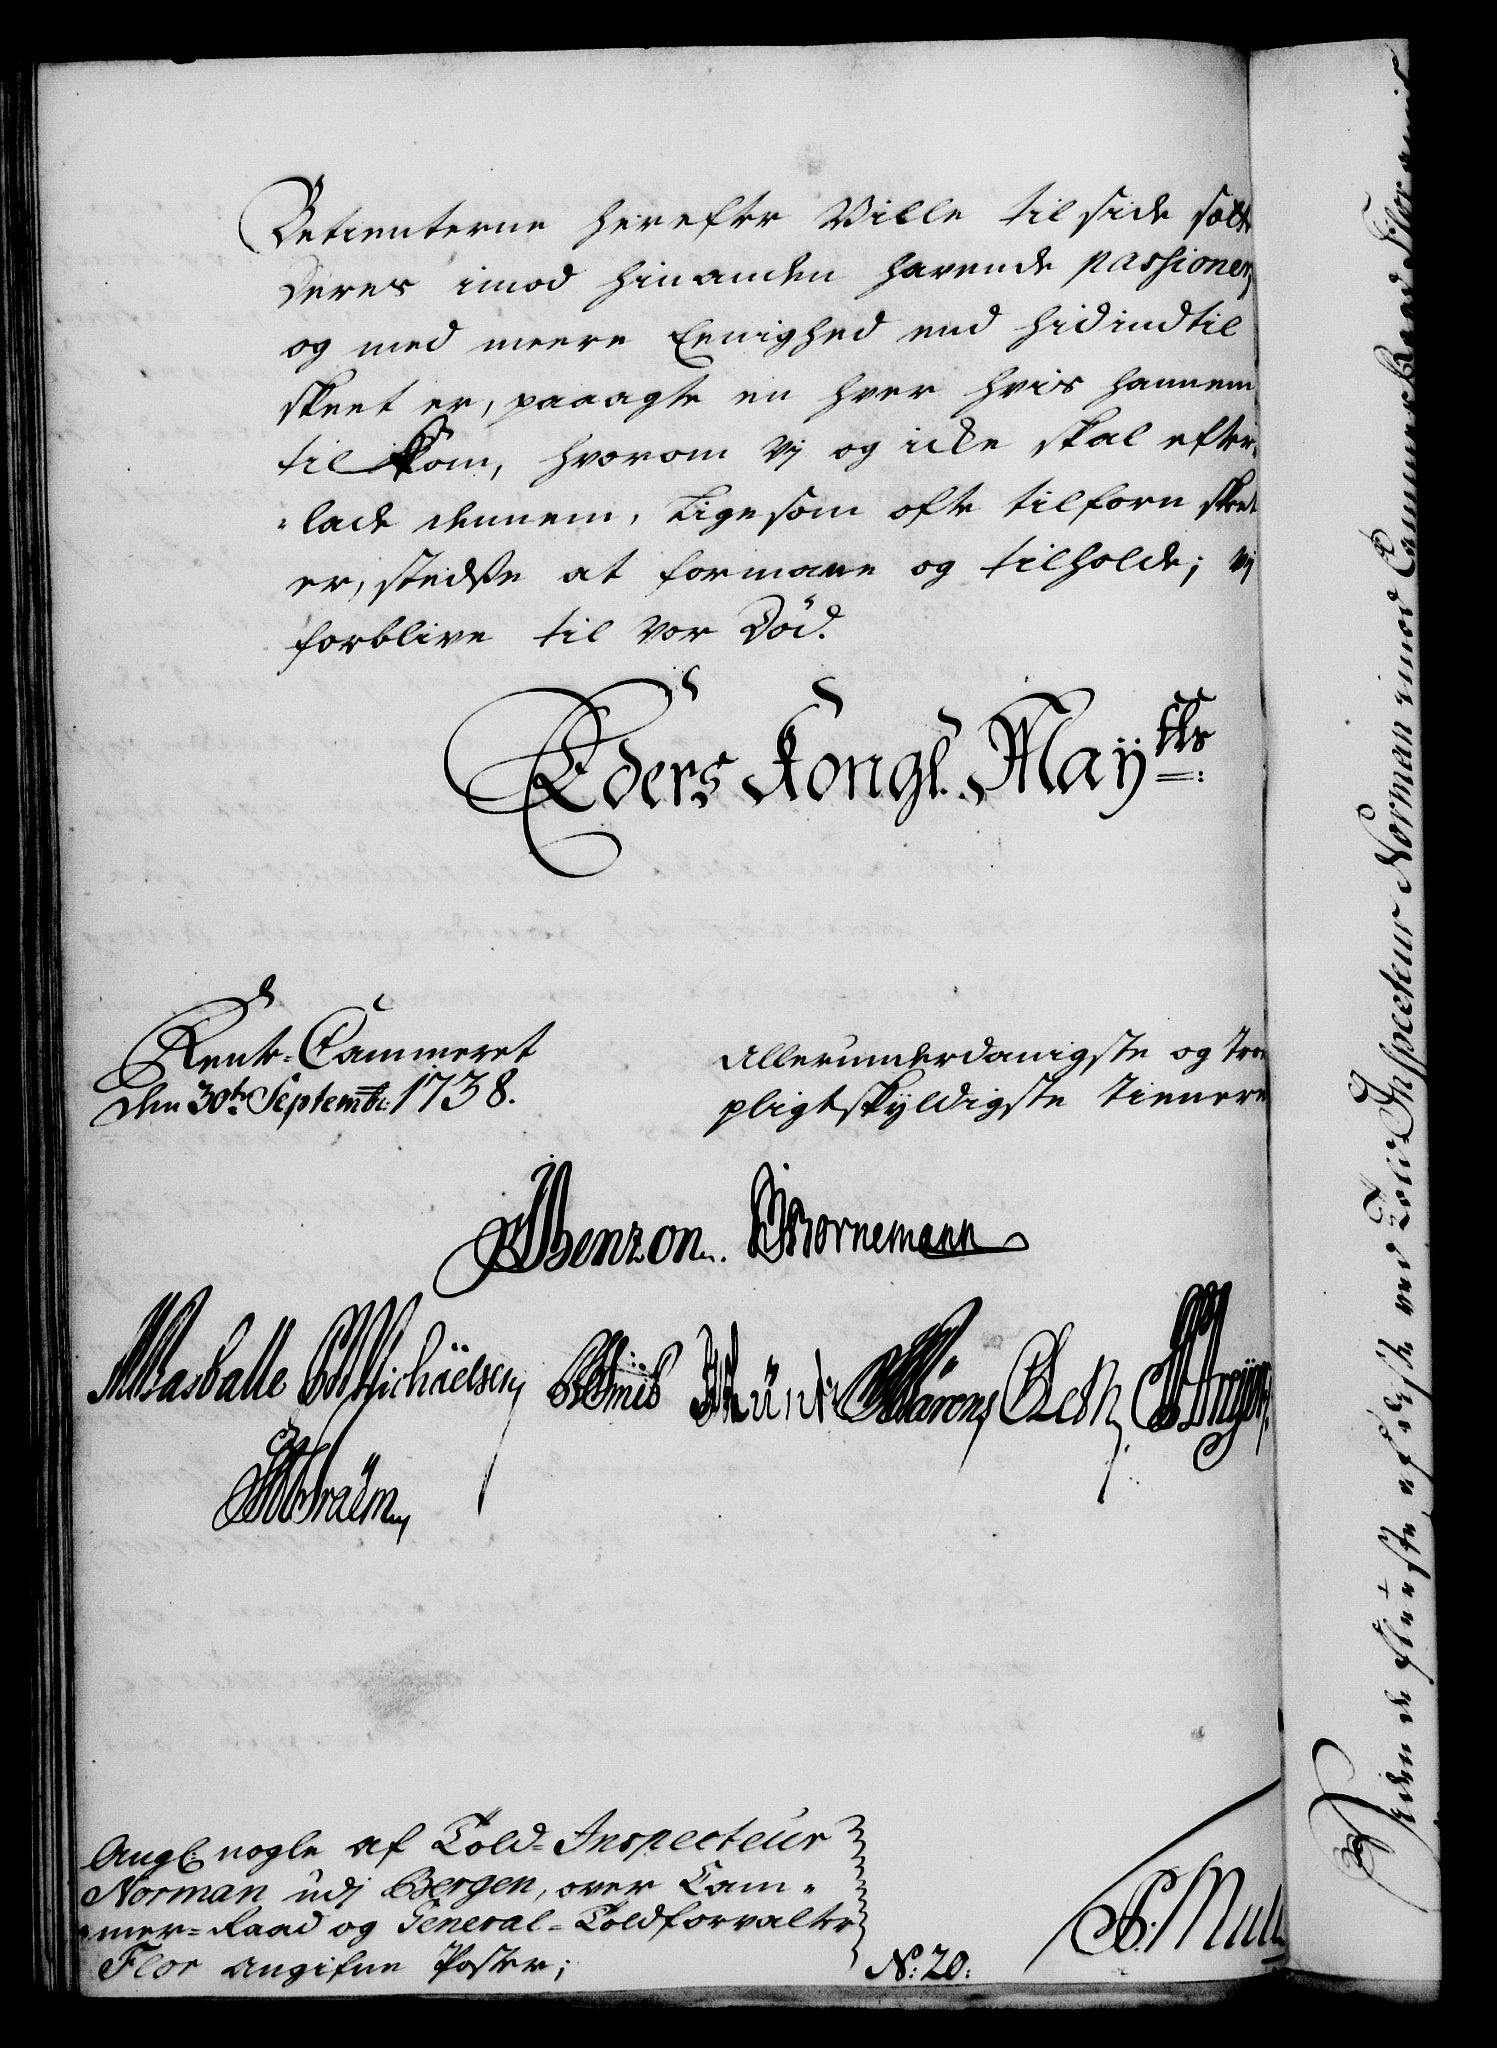 Betienterne herefter Ville til side sætte
deres imod hinanden havende passioner,
og med meere Eenighed end hidindtil
skeet er, paaagte en hver hvis hannem
tilkom, hvorom Vj og icke skal efter-
-lade dennem, Ligesom ofte tilforn skeet
er, stedse at formane og tilholde; Vj
forblive til vor Död.
Eders Kongl. Mayts
Rente-Cammeret
den 30te Septembr: 1738.
Allerunderdanigste og troe
pligtskyldigste tienere
Benzon. Bornemann
Masballe Michäelsen Münt Wärens
Angl: nogle af Told-Inspecteur
Norman udj Bergen, over Cam-
-mer-Raad og General-Toldforvalter
Flor angifne Poster;
No: 20:
efterste, ved Told-Inspecteur Norman imod Cammer-Raad Flor